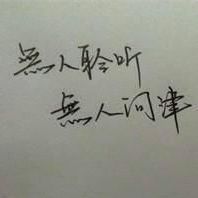 無人聆听
無人问津